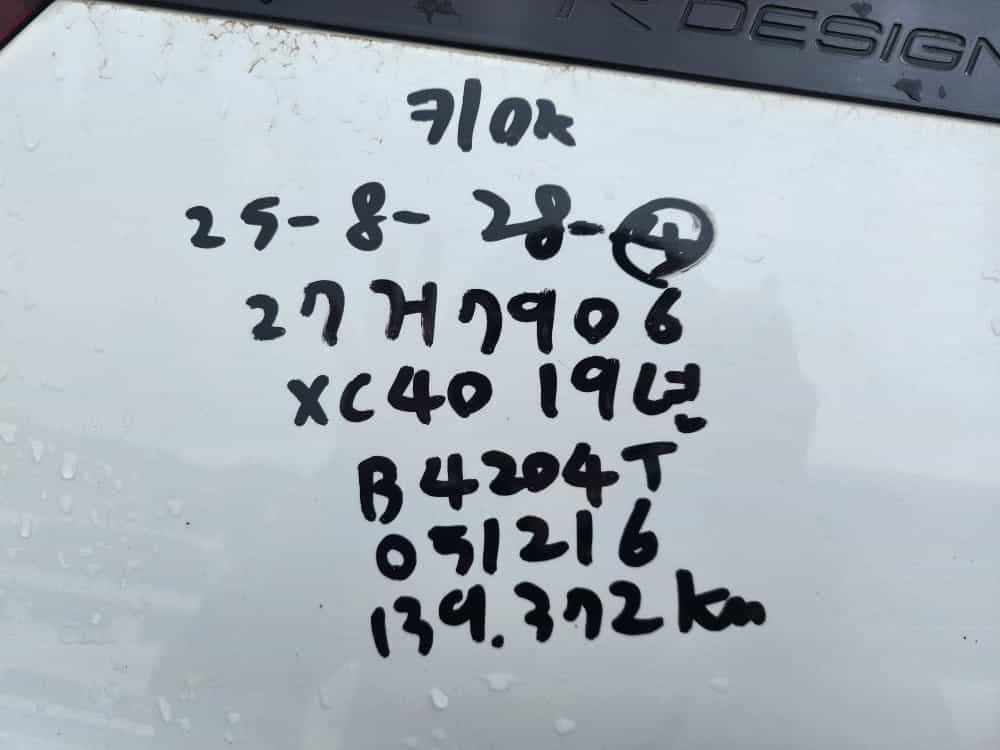 R DESIGN
키ok
25-8-28-④
27거7906
XC40 19년
B4204T
051216
139.372km